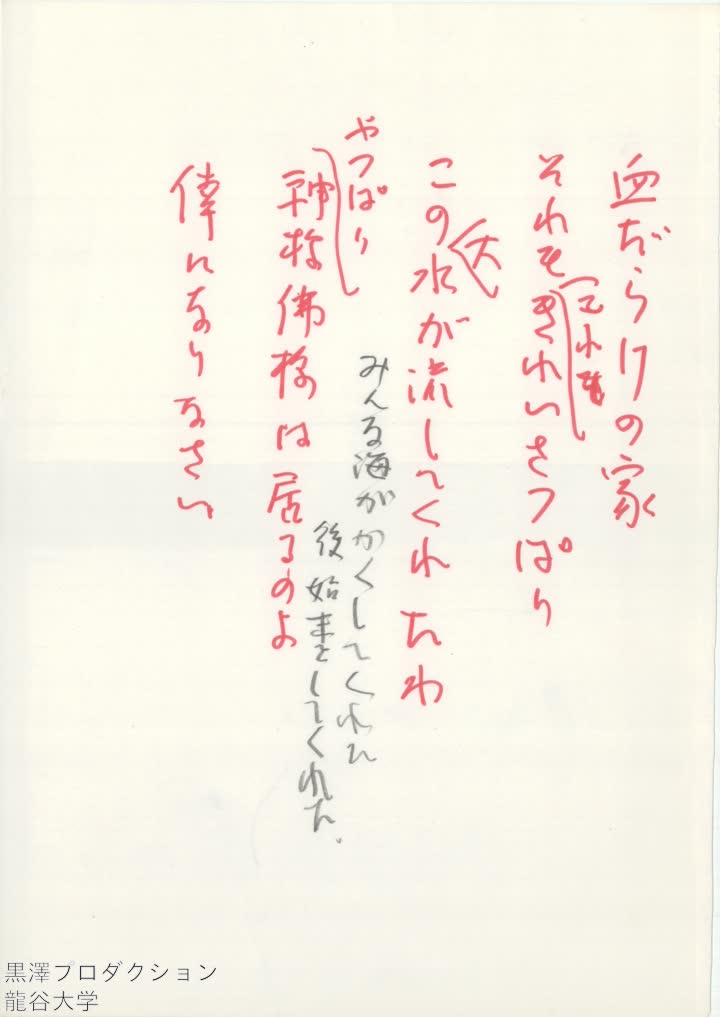 血だらけの家
それをきれいさつぱり
これを
この水が流してくれたわ
大
やつぱり
神様佛様は居るのよ
偉になりなさい
みんな海がかくしてくれた
後始末をしてくれた。
黒澤プロダクション
龍谷大学